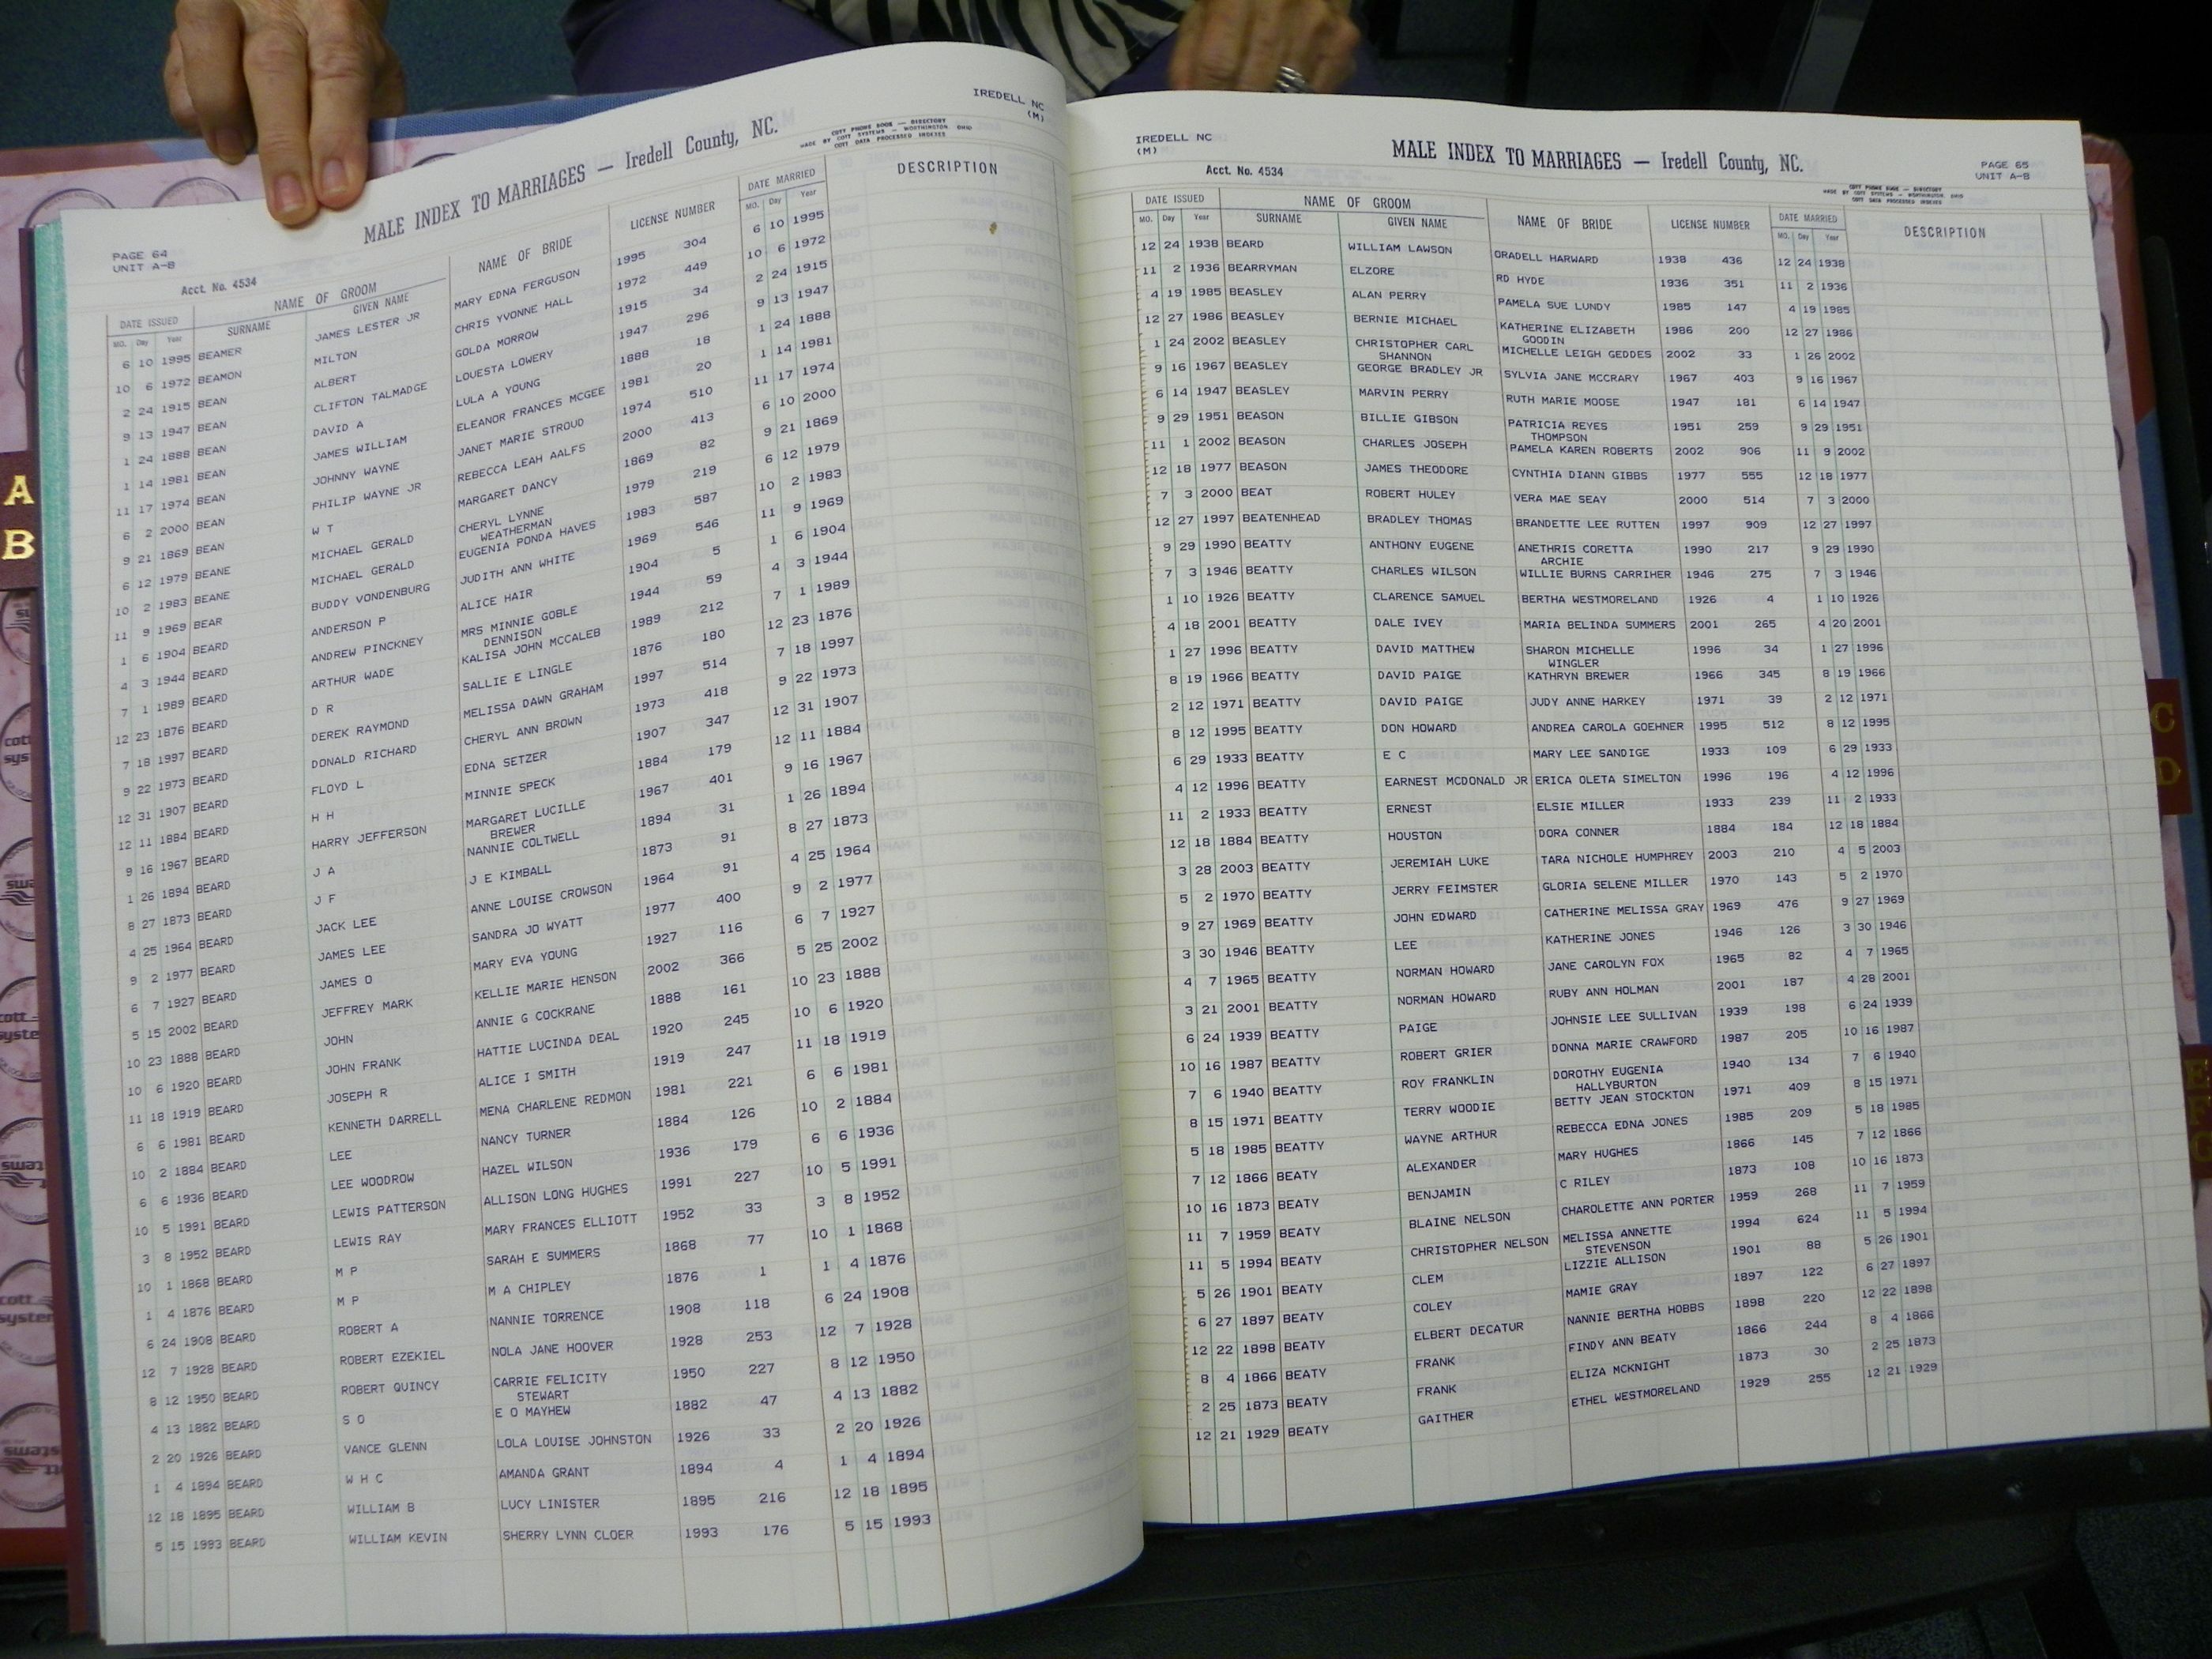 PAGE 64
UNIT A-B
IREDELL NC
(M)
MALE INDEX TO MARRIAGES — Iredell County, NC.
COTT PHONE BOOK — DIRECTORY
MADE BY COTT SYSTEMS — WORTHINGTON OHIO
COTT DATA PROCESSED INDEXES
Acct. No. 4534
DATE ISSUED NAME OF GROOM NAME OF BRIDE LICENSE NUMBER DATE MARRIED DESCRIPTION
MO. Day Year SURNAME GIVEN NAME MO. Day Year
6 10 1995 BEAMER JAMES LESTER JR MARY EDNA FERGUSON 1995 304 6 10 1995
10 6 1972 BEAMON MILTON CHRIS YVONNE HALL 1972 449 10 6 1972
2 24 1915 BEAN ALBERT GOLDA MORROW 1915 34 2 24 1915
9 13 1947 BEAN CLIFTON TALMADGE LOUESTA LOWERY 1947 296 9 13 1947
1 24 1888 BEAN DAVID A LULA A YOUNG 1888 18 1 24 1888
1 14 1981 BEAN JAMES WILLIAM ELEANOR FRANCES MCGEE 1981 20 1 14 1981
11 17 1974 BEAN JOHNNY WAYNE JANET MARIE STROUD 1974 510 11 17 1974
6 2 2000 BEAN PHILIP WAYNE JR REBECCA LEAH AALFS 2000 413 6 10 2000
9 21 1869 BEAN W T MARGARET DANCY 1869 82 9 21 1869
6 12 1979 BEANE MICHAEL GERALD CHERYL LYNNE 1979 219 6 12 1979
WEATHERMAN
10 2 1983 BEANE MICHAEL GERALD EUGENIA PONDA HAVES 1983 587 10 2 1983
11 9 1969 BEAR BUDDY VONDENBURG JUDITH ANN WHITE 1969 546 11 9 1969
1 6 1904 BEARD ANDERSON P ALICE HAIR 1904 5 1 6 1904
4 3 1944 BEARD ANDREW PINCKNEY MRS MINNIE GOBLE 1944 59 4 3 1944
DENNISON
7 1 1989 BEARD ARTHUR WADE KALISA JOHN MCCALEB 1989 212 7 1 1989
12 23 1876 BEARD D R SALLIE E LINGLE 1876 180 12 23 1876
7 18 1997 BEARD DEREK RAYMOND MELISSA DAWN GRAHAM 1997 514 7 18 1997
9 22 1973 BEARD DONALD RICHARD CHERYL ANN BROWN 1973 418 9 22 1973
12 31 1907 BEARD FLOYD L EDNA SETZER 1907 347 12 31 1907
12 11 1884 BEARD H H MINNIE SPECK 1884 179 12 11 1884
9 16 1967 BEARD HARRY JEFFERSON MARGARET LUCILLE 1967 401 9 16 1967
BREWER
1 26 1894 BEARD J A NANNIE COLTWELL 1894 31 1 26 1894
8 27 1873 BEARD J F J E KIMBALL 1873 91 8 27 1873
4 25 1964 BEARD JACK LEE ANNE LOUISE CROWSON 1964 91 4 25 1964
9 2 1977 BEARD JAMES LEE SANDRA JO WYATT 1977 400 9 2 1977
6 7 1927 BEARD JAMES O MARY EVA YOUNG 1927 116 6 7 1927
5 15 2002 BEARD JEFFREY MARK KELLIE MARIE HENSON 2002 366 5 25 2002
10 23 1888 BEARD JOHN ANNIE G COCKRANE 1888 161 10 23 1888
10 6 1920 BEARD JOHN FRANK HATTIE LUCINDA DEAL 1920 245 10 6 1920
11 18 1919 BEARD JOSEPH R ALICE I SMITH 1919 247 11 18 1919
6 6 1981 BEARD KENNETH DARRELL MENA CHARLENE REDMON 1981 221 6 6 1981
10 2 1884 BEARD LEE NANCY TURNER 1884 126 10 2 1884
6 6 1936 BEARD LEE WOODROW HAZEL WILSON 1936 179 6 6 1936
10 5 1991 BEARD LEWIS PATTERSON ALLISON LONG HUGHES 1991 227 10 5 1991
3 8 1952 BEARD LEWIS RAY MARY FRANCES ELLIOTT 1952 33 3 8 1952
10 1 1868 BEARD M P SARAH E SUMMERS 1868 77 10 1 1868
1 4 1876 BEARD M P M A CHIPLEY 1876 1 1 4 1876
6 24 1908 BEARD ROBERT A NANNIE TORRENCE 1908 118 6 24 1908
12 7 1928 BEARD ROBERT EZEKIEL NOLA JANE HOOVER 1928 253 12 7 1928
8 12 1950 BEARD ROBERT QUINCY CARRIE FELICITY 1950 227 8 12 1950
STEWART
4 13 1882 BEARD S O E O MAYHEW 1882 47 4 13 1882
2 20 1926 BEARD VANCE GLENN LOLA LOUISE JOHNSTON 1926 33 2 20 1926
1 4 1894 BEARD W H C AMANDA GRANT 1894 4 1 4 1894
12 18 1895 BEARD WILLIAM B LUCY LINISTER 1895 216 12 18 1895
5 15 1993 BEARD WILLIAM KEVIN SHERRY LYNN CLOER 1993 176 5 15 1993
IREDELL NC
(M)
MALE INDEX TO MARRIAGES — Iredell County, NC.
PAGE 65
UNIT A-B
Acct. No. 4534
COTT PHONE BOOK — DIRECTORY
MADE BY COTT SYSTEMS — WORTHINGTON OHIO
COTT DATA PROCESSED INDEXES
DATE ISSUED NAME OF GROOM NAME OF BRIDE LICENSE NUMBER DATE MARRIED DESCRIPTION
MO. Day Year SURNAME GIVEN NAME MO. Day Year
12 24 1938 BEARD WILLIAM LAWSON ORADELL HARWARD 1938 436 12 24 1938
11 2 1936 BEARRYMAN ELZORE RD HYDE 1936 351 11 2 1936
4 19 1985 BEASLEY ALAN PERRY PAMELA SUE LUNDY 1985 147 4 19 1985
12 27 1986 BEASLEY BERNIE MICHAEL KATHERINE ELIZABETH 1986 200 12 27 1986
GOODIN
1 24 2002 BEASLEY CHRISTOPHER CARL MICHELLE LEIGH GEDDES 2002 33 1 26 2002
SHANNON
9 16 1967 BEASLEY GEORGE BRADLEY JR SYLVIA JANE MCCRARY 1967 403 9 16 1967
6 14 1947 BEASLEY MARVIN PERRY RUTH MARIE MOOSE 1947 181 6 14 1947
9 29 1951 BEASON BILLIE GIBSON PATRICIA REYES 1951 259 9 29 1951
THOMPSON
11 1 2002 BEASON CHARLES JOSEPH PAMELA KAREN ROBERTS 2002 906 11 9 2002
12 18 1977 BEASON JAMES THEODORE CYNTHIA DIANN GIBBS 1977 555 12 18 1977
7 3 2000 BEAT ROBERT HULEY VERA MAE SEAY 2000 514 7 3 2000
12 27 1997 BEATENHEAD BRADLEY THOMAS BRANDETTE LEE RUTTEN 1997 909 12 27 1997
9 29 1990 BEATTY ANTHONY EUGENE ANETHRIS CORETTA 1990 217 9 29 1990
ARCHIE
7 3 1946 BEATTY CHARLES WILSON WILLIE BURNS CARRIHER 1946 275 7 3 1946
1 10 1926 BEATTY CLARENCE SAMUEL BERTHA WESTMORELAND 1926 4 1 10 1926
4 18 2001 BEATTY DALE IVEY MARIA BELINDA SUMMERS 2001 265 4 20 2001
1 27 1996 BEATTY DAVID MATTHEW SHARON MICHELLE 1996 34 1 27 1996
WINGLER
8 19 1966 BEATTY DAVID PAIGE KATHRYN BREWER 1966 345 8 19 1966
2 12 1971 BEATTY DAVID PAIGE JUDY ANNE HARKEY 1971 39 2 12 1971
8 12 1995 BEATTY DON HOWARD ANDREA CAROLA GOEHNER 1995 512 8 12 1995
6 29 1933 BEATTY E C MARY LEE SANDIGE 1933 109 6 29 1933
4 12 1996 BEATTY EARNEST MCDONALD JR ERICA OLETA SIMELTON 1996 196 4 12 1996
11 2 1933 BEATTY ERNEST ELSIE MILLER 1933 239 11 2 1933
12 18 1884 BEATTY HOUSTON DORA CONNER 1884 184 12 18 1884
3 28 2003 BEATTY JEREMIAH LUKE TARA NICHOLE HUMPHREY 2003 210 4 5 2003
5 2 1970 BEATTY JERRY FEIMSTER GLORIA SELENE MILLER 1970 143 5 2 1970
9 27 1969 BEATTY JOHN EDWARD CATHERINE MELISSA GRAY 1969 476 9 27 1969
3 30 1946 BEATTY LEE KATHERINE JONES 1946 126 3 30 1946
4 7 1965 BEATTY NORMAN HOWARD JANE CAROLYN FOX 1965 82 4 7 1965
3 21 2001 BEATTY NORMAN HOWARD RUBY ANN HOLMAN 2001 187 4 28 2001
6 24 1939 BEATTY PAIGE JOHNSIE LEE SULLIVAN 1939 198 6 24 1939
10 16 1987 BEATTY ROBERT GRIER DONNA MARIE CRAWFORD 1987 205 10 16 1987
7 6 1940 BEATTY ROY FRANKLIN DOROTHY EUGENIA 1940 134 7 6 1940
HALLYBURTON
8 15 1971 BEATTY TERRY WOODIE BETTY JEAN STOCKTON 1971 409 8 15 1971
5 18 1985 BEATTY WAYNE ARTHUR REBECCA EDNA JONES 1985 209 5 18 1985
7 12 1866 BEATY ALEXANDER MARY HUGHES 1866 145 7 12 1866
10 16 1873 BEATY BENJAMIN C RILEY 1873 108 10 16 1873
11 7 1959 BEATY BLAINE NELSON CHAROLETTE ANN PORTER 1959 268 11 7 1959
11 5 1994 BEATY CHRISTOPHER NELSON MELISSA ANNETTE 1994 624 11 5 1994
STEVENSON
5 26 1901 BEATY CLEM LIZZIE ALLISON 1901 88 5 26 1901
6 27 1897 BEATY COLEY MAMIE GRAY 1897 122 6 27 1897
12 22 1898 BEATY ELBERT DECATUR NANNIE BERTHA HOBBS 1898 220 12 22 1898
8 4 1866 BEATY FRANK FINDY ANN BEATY 1866 244 8 4 1866
2 25 1873 BEATY FRANK ELIZA MCKNIGHT 1873 30 2 25 1873
12 21 1929 BEATY GAITHER ETHEL WESTMORELAND 1929 255 12 21 1929
A
B
C
D